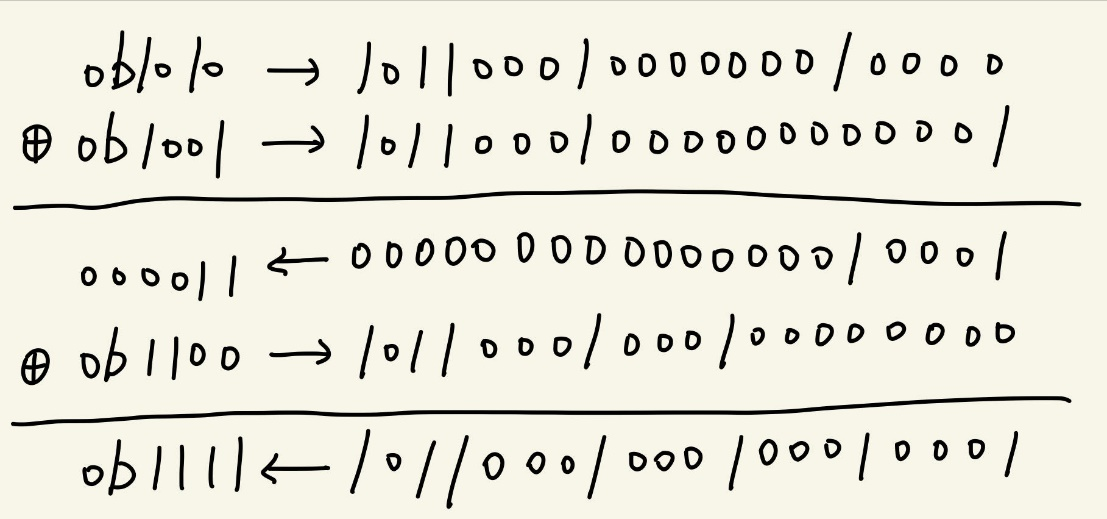 0b1010 → 10110001000000010000
⊕ 0b1001 → 10110001000000000001
000011 ← 00000000000000010001
⊕ 0b1100 → 10110001000100000000
0b1111 ← 10110001000100010001